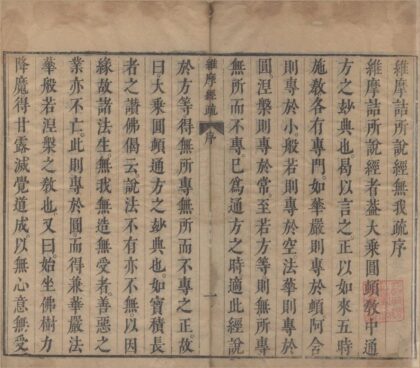 維摩詰所說經無我疏序
維摩詰所說經者蓋大乘圓頓教中通
方之妙典也曷以言之正以如來五時
施教各有專門如華嚴則專於頓阿含
則專於小般若則專於空法華則專於
圓涅槃則專於常至若方等則無所專
無所而不專已為通方之時適此經說
維摩經疏 序 一
於方等得無所專無所而不專之正故
曰大乘圓頓通方之妙典也如寶積長
者之讚佛偈云說法不有亦不無以因
緣故諸法生無我無造無受者善惡之
業亦不亡此則專於圓而得兼華嚴法
華般若涅槃之教也又曰始坐佛樹力
降魔得甘露滅覺道成以無心意無受